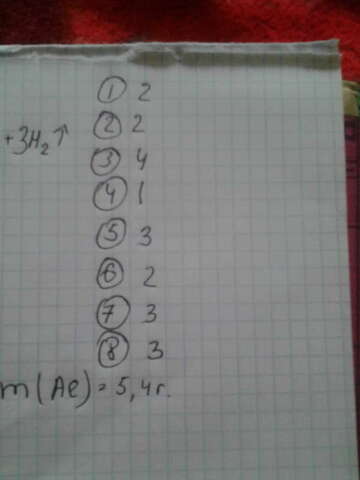 ① 2
② 2
+3H₂↑
③ 4
④ 1
⑤ 3
⑥ 2
⑦ 3
⑧ 3
m(Al) = 5,4г.